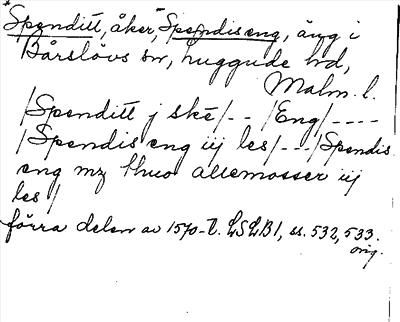 *Spenditt, åker, *Spendiseng, äng i
Bårslövs sn, Luggude hd,
Malm. l.
/Spenditt j ske/-- /Eng/----
/Spendis eng iij les/---/Spendis
eng mz thuo allemosser iij
les/
förra delen av 1570-t. LSLB1, ss. 532, 533.
orig.